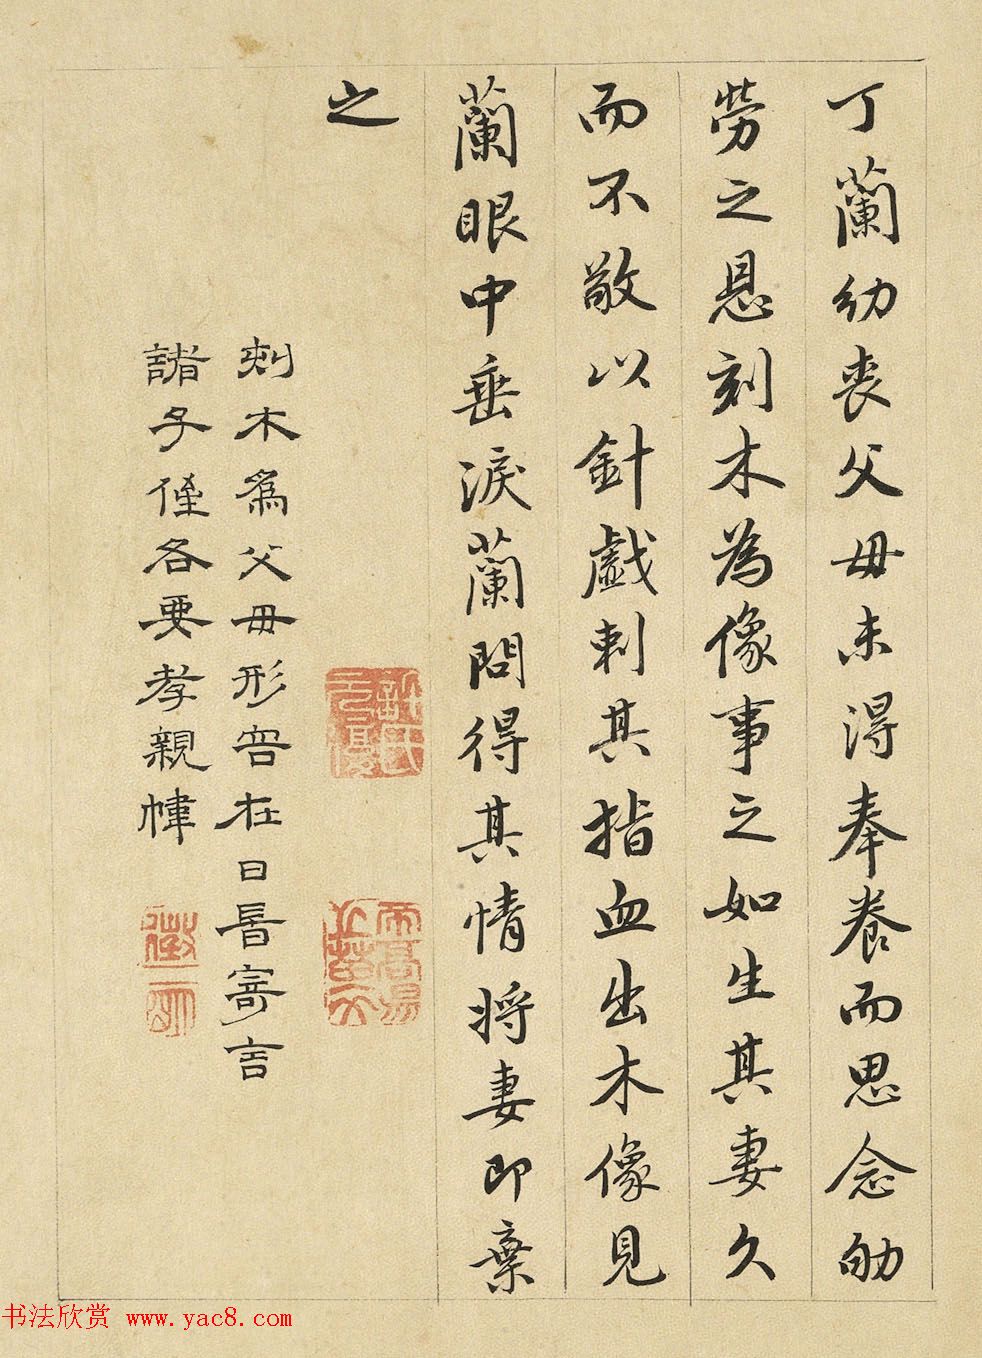 丁蘭幼喪父母未得奉養而思念劬
勞之恩刻木為像事之如生其妻久
而不敬以針戲刺其指血出木像見
蘭眼中垂淚蘭問得其情將妻即棄
之
刻木爲父母形容在日省寄言
諸子侄各要孝親幃
書法欣赏 www.yac8.com